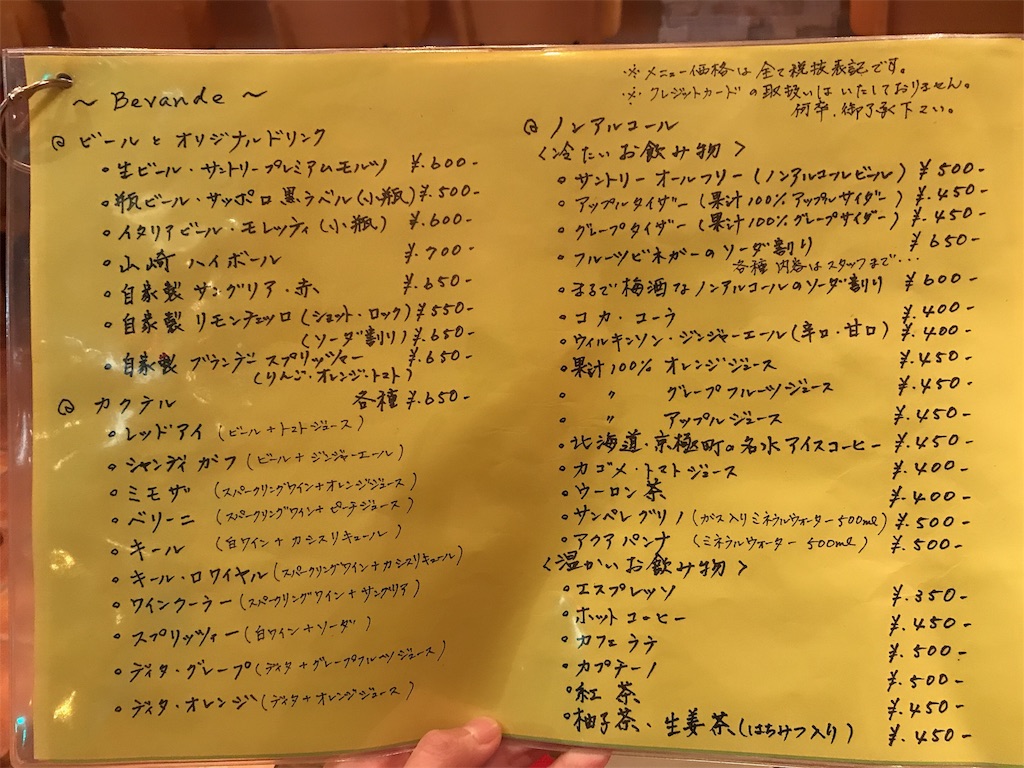 ～ Bevande ～
◎ ビールとオリジナルドリンク
・生ビール・サントリープレミアムモルツ ¥.600-
・瓶ビール・サッポロ黒ラベル(小瓶) ¥.500-
・イタリアビール・モレッティ(小瓶) ¥.600-
・山崎ハイボール ¥.700-
・自家製サングリア・赤 ¥.650-
・自家製リモンチェッロ(ショット・ロック) ¥550-
(ソーダ割り) ¥.650-
・自家製ブランデースプリッツァー ¥.650-
(りんご・オレンジ・トマト)
◎ カクテル 各種 ¥.650-
・レッドアイ(ビール+トマトジュース)
・シャンディガフ(ビール+ジンジャーエール)
・ミモザ (スパークリングワイン+オレンジジュース)
・ベリーニ (スパークリングワイン+ピーチジュース)
・キール (白ワイン+カシスリキュール)
・キール・ロワイヤル(スパークリングワイン+カシスリキュール)
・ワインクーラー(スパークリングワイン+サングリア)
・スプリッツィー(白ワイン+ソーダ)
・ディタ・グレープ(ディタ+グレープフルーツジュース)
・ディタ・オレンジ(ディタ+オレンジジュース)
※メニュー価格は全て税抜表記です。
※クレジットカードの取扱いはいたしておりません。
何卒、御了承下さい。
◎ ノンアルコール
<冷たいお飲み物>
・サントリーオールフリー(ノンアルコールビール) ¥500-
・アップルタイザー(果汁100%アップルサイダー) ¥.450-
・グレープタイザー(果汁100%グレープサイダー) ¥.450-
・フルーツビネガーのソーダ割り ¥650-
各種内容はスタッフまで・・・
・まるで梅酒なノンアルコールのソーダ割り ¥600-
・コカ・コーラ ¥.400-
・ウィルキンソン・ジンジャーエール(辛口・甘口) ¥.400-
・果汁100% オレンジジュース ¥.450-
・ 〃 グレープフルーツジュース ¥.450-
・ 〃 アップルジュース ¥.450-
・北海道・京極町の名水アイスコーヒー ¥.450-
・カゴメ・トマトジュース ¥.400-
・ウーロン茶 ¥.400-
・サンペレグリノ(ガス入りミネラルウォーター 500ml) ¥.500-
・アクアパンナ (ミネラルウォーター 500ml) ¥.500-
<温かいお飲み物>
・エスプレッソ ¥.350-
・ホットコーヒー ¥.450-
・カフェラテ ¥.500-
・カプチーノ ¥.500-
・紅茶 ¥.450-
・柚子茶、生姜茶(はちみつ入り) ¥.450-